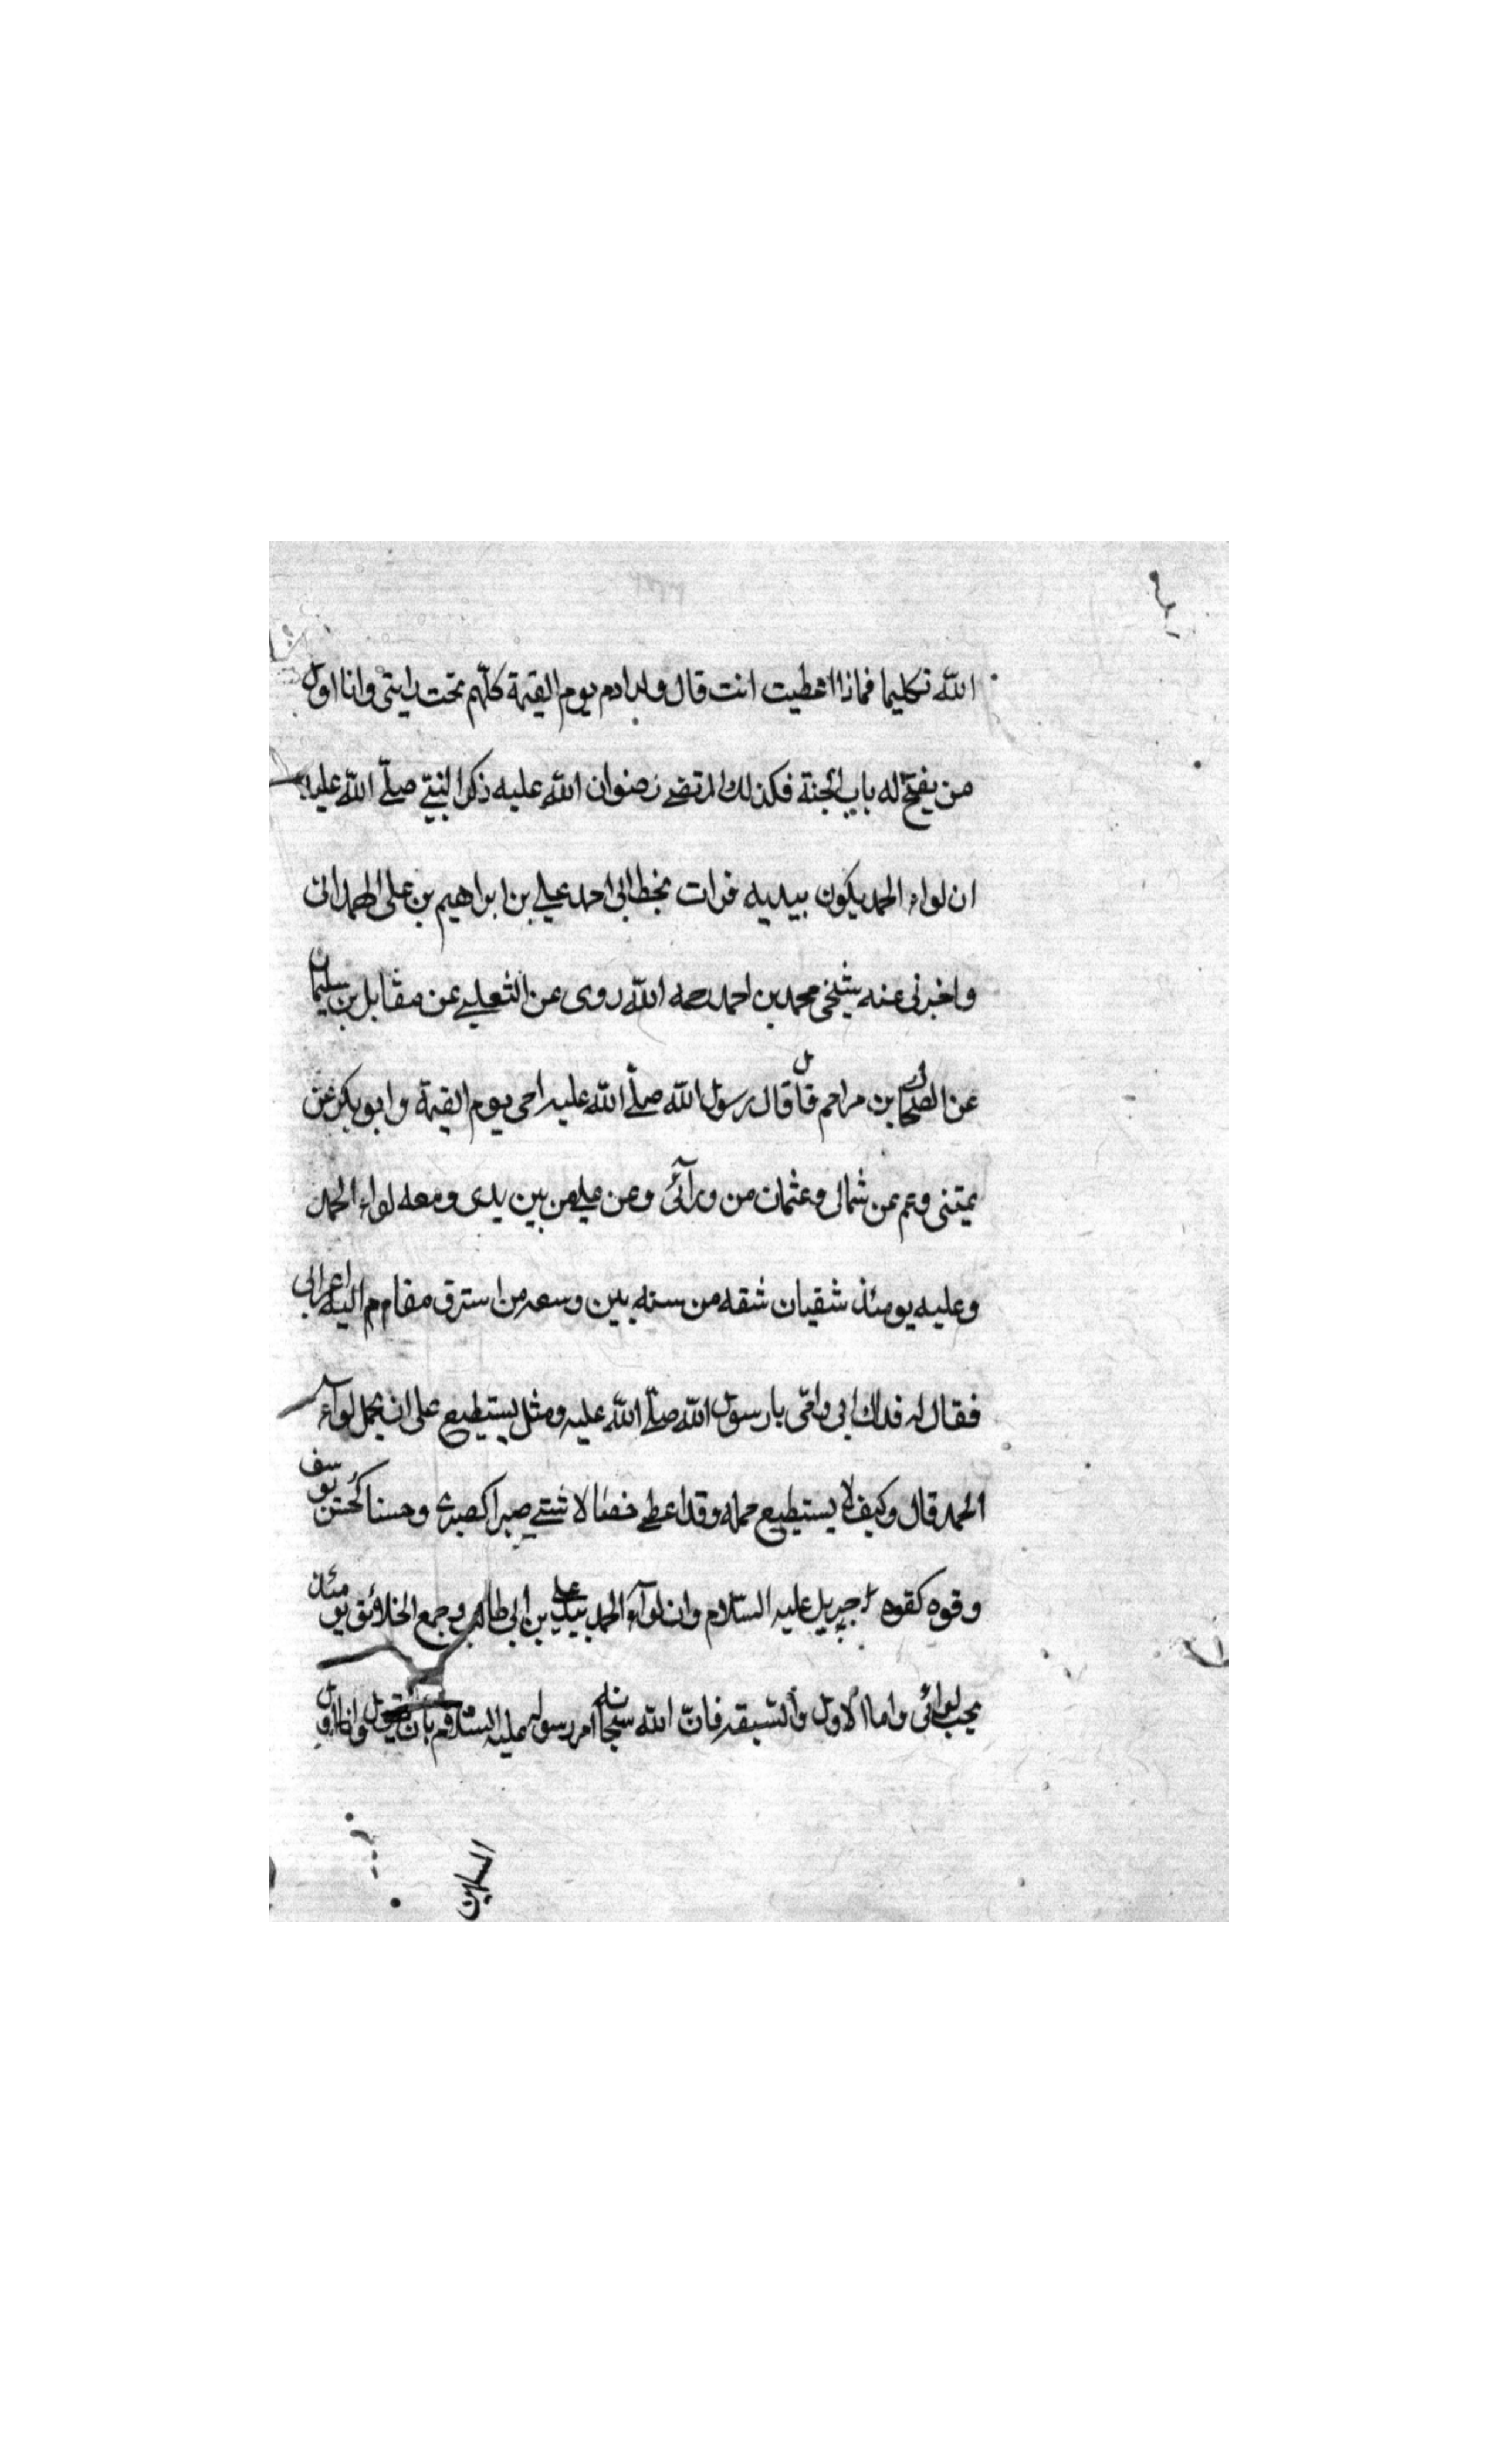 الله تكليما فماذا اعطيت انت قال ولد ادم يوم القيمة كلّهم تحت رايتى وانا اول
من يفتح له باب الجنة فكذلك المرتضى رضوان الله عليه ذكر النبي صلّى الله عليه
ان لواء الحمد يكون بيديه قرات بخط ابى احمد على بن ابراهيم بن على الهمدانى
واخبرنى عنه شيخى محمد بن احمد رحمه الله روى عن الثعلبى عن مقابل بن سليمان
عن الضحاك بن مراحم قال قال رسول الله صلّى الله عليه احى يوم القيمة وابو بكر عن
يمينى وعمر عن شمالى وعثمان من ورآئى وعن على من بين يدى ومعه لواء الحمد
وعليه يومئذ شقيان شقه من سنه بين وسعه من استرق مقام اليه اعرابى
فقال له فداك ابى وامّى يا رسول الله صلّى الله عليه ومثل يستطيع على ان يحمل لوآء
الحمد قال وكيف لا يستطيع حمله وقد اعطى خصالا شتى صبرا كصبرى وحسنا كحسن يوسف
وقوه كقوه جبريل عليه السّلام وان لوآء الحمد بيد على بن ابى طالب وجمع الخلائق يومئذ
تحت لوائى واما الاول والسبقه فانّ الله سبحانه امر رسوله عليه السلام بان يقول وانا اول
المسلمين